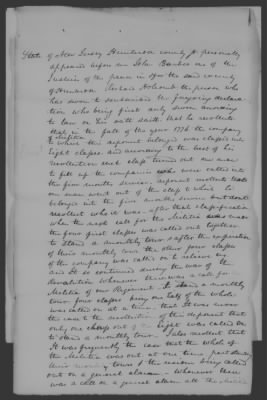 State of New Jersey Hunterdon county ss personally
appeared before me John Barber one of the
Justices of the peace in & for the said county
of Hunterdon Holcomb the person who
has sworn & subscribed the foregoing declara
tion who being first duly sworn according
to law on his oath saith that he recollects
that in the fall of the year 1776 the company
to which this deponent belonged was classed into
Eight classes and according to the best of his
recollection each class turned out one man
to fill up the companies who were called into
the five months service deponent recollects that
one man went out of the class to which he
belonged into the five months service but dont
recollect who it was after that classification
when the next call for the Militia was made
the four first classes was called out together
to stand a monthly tour & after the expiration
of their monthly tour the other four classes
of the company was called on to relieve them
and it so continued during the war of the
Revolution whenever there was a call for
Militia of our Regiment to stand a monthly
tour four classes being one half of the whole
was called on at a time that it was never
the case to the recollection of this deponent that
only one class out of the Eight was called on
to stand a monthly tour I also recollect that
it was frequently the case that the whole of
the Militia was out at one time part during
their monthly tour & the reason being called
out on a general alarm Whenever there
was a call on a general alarm all the